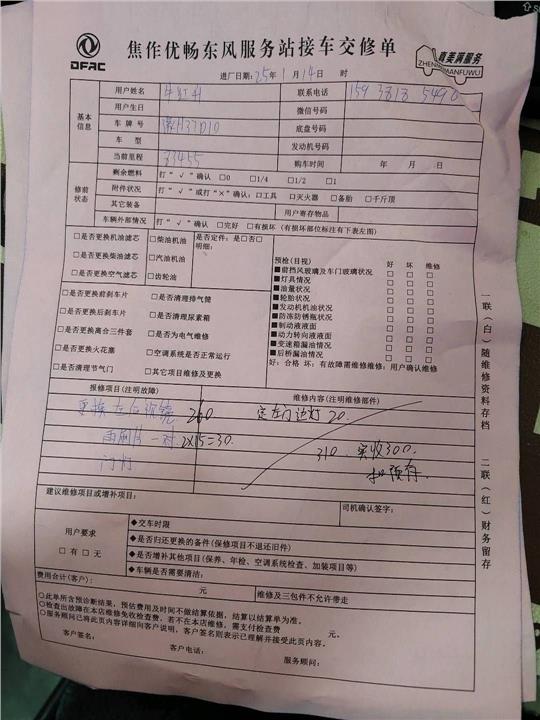 DFAC
焦作优畅东风服务站接车交修单
真美满服务
ZHENMEIMANFUWU
进厂日期:25年1月14日 时
基本信息
用户姓名 联系电话 159 3818 5490
用户生日 微信号码
车牌号 豫H37D10 底盘号码
车型 发动机号码
当前里程 83455 购车时间 年 月 日
修前状态
剩余燃料 打“√”确认 □0 □1/4 □1/2 □1
附件状况 打“√”或打“×”确认:□工具 □灭火器 □备胎 □千斤顶
其它装备 用户寄存物品
车辆外部情况 打“√”确认 □完好 □有损坏(有损坏部位标注有下表左图)
□是否更换机油滤芯 □柴油机油 是否定件:是□否□
□是否更换柴油滤芯 □汽油机油 明细:
□是否更换空气滤芯 □齿轮油
□是否更换前刹车片 □是否清理排气筒
□是否更换后刹车片 □是否清理尿素箱
□是否更换离合三件套 □是否为电气维修
□是否更换火花塞 □空调系统是否正常运行
□是否清理节气门 □其它项目维修及更换
预检(目视) 好 坏 维修
■前挡风玻璃及车门玻璃状况 □ □ □
■灯具情况 □ □ □
■油量状况 □ □ □
■轮胎状况 □ □ □
■发动机机油状况 □ □ □
■防冻防锈瓶状况 □ □ □
■制动液液面 □ □ □
■动力转向液液面 □ □ □
■变速箱漏油情况 □ □ □
■后桥漏油情况 □ □ □
好:合格 坏:有故障需维修维修:用户确认维修
报修项目(注明故障) 维修内容(注明维修部件)
更换左后视镜 260 定左门边灯 20.
雨刷片一对 2X15=30.
310. 实收300.
门灯 扣预存.
建议维修项目或增补项目: 司机确认签字:
用户要求
□有 □无
◆交车时限
◆是否归还更换的备件(保修项目不退还旧件)
◆是否增补其他项目(保养、年检、空调系统检查、加装项目等)
◆车辆是否需要清洁:
费用合计(客户): 元 维修及三包件不允许带走
○此单所含预诊断结果,预估费用及时间不做结算依据,结算以结算单为准。
○检查出故障在本店维修免收检查费,若不在本店维修,需支付检查费 元。
○服务顾问已将此页内容详细向客户说明,客户签名则表示已理解并接受此页内容。
客户签名: 客户电话: 服务顾问:
一联(白)随维修资料存档
二联(红)财务留存